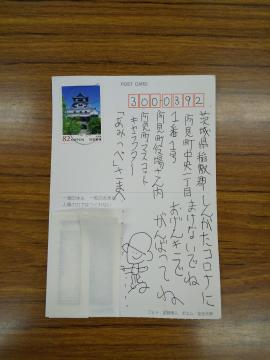 POST CARD
3000392
82
茨城県稲敷郡
阿見町中央一丁目
1番1号
阿見町役場さん内
阿見町マスコット
キャラクター
「あみっぺ」さまへ
しんがたコロナに
まけないでね
おげんキで
がんばってね